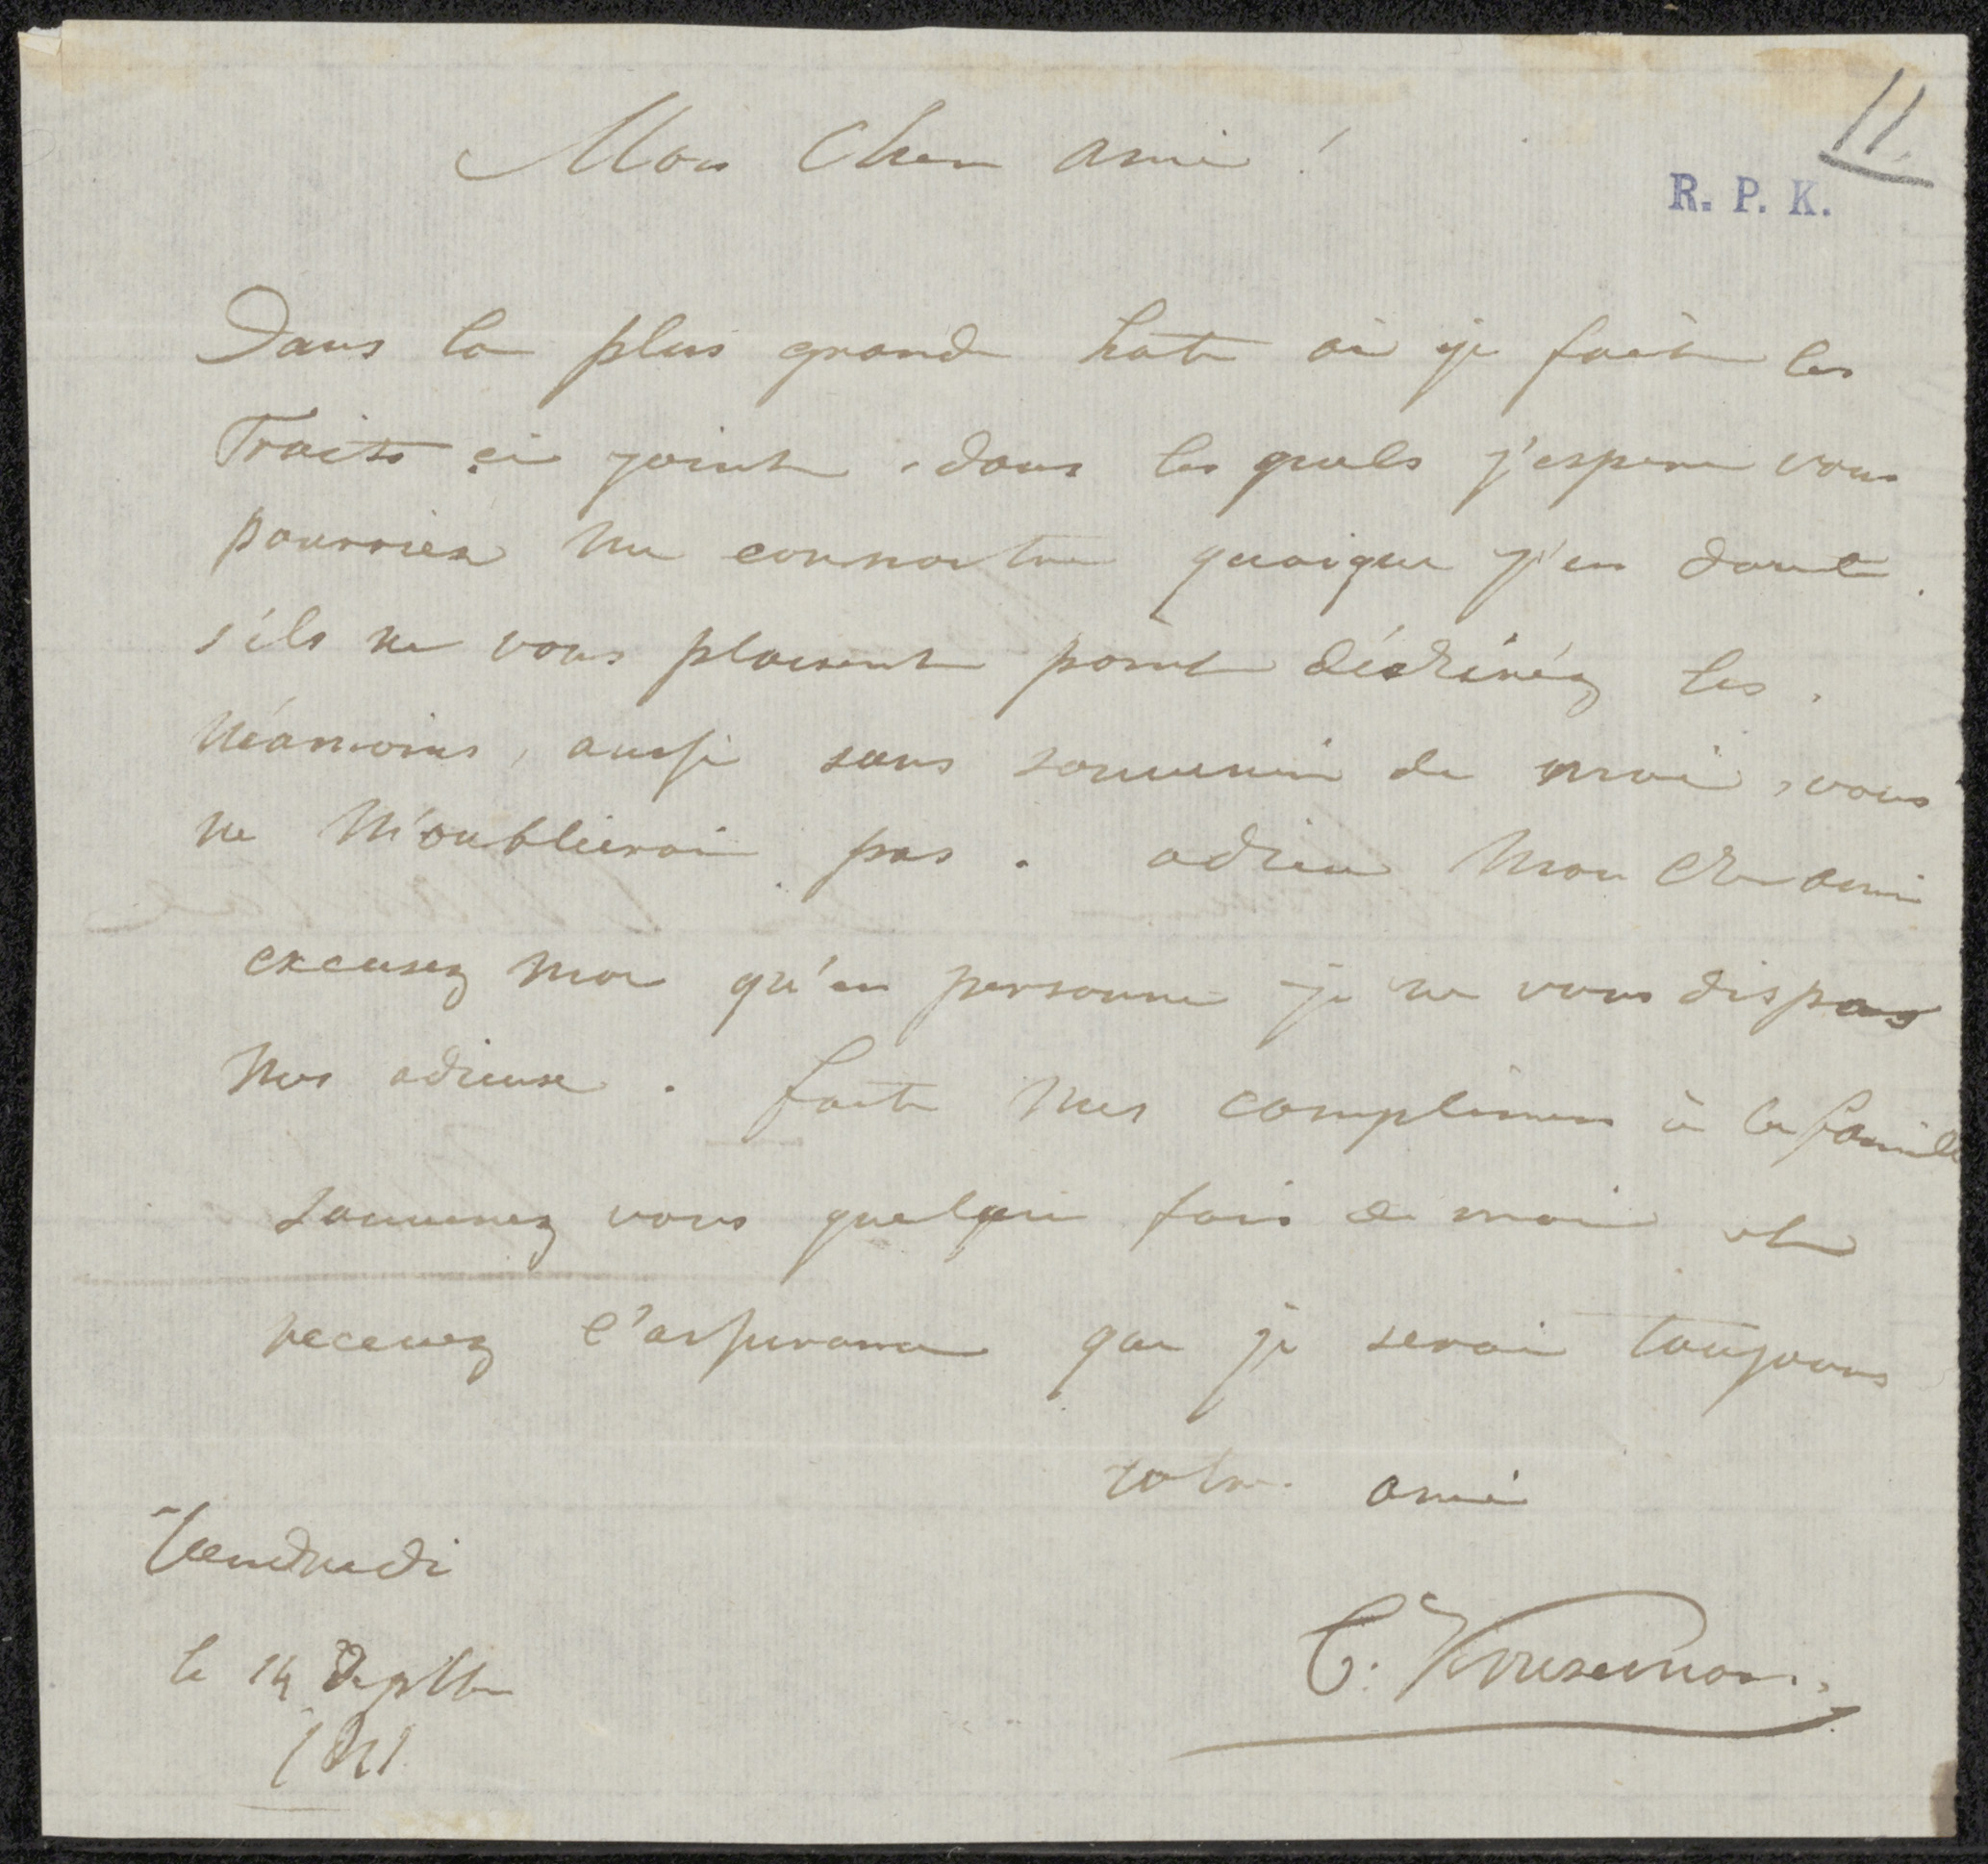 Mon Cher ami !
11.
R. P. K.
Dans la plus grande hate ai je fait les
Traits ci joint, dans les quels j'espere vous
pourriez me connoitre quoique j'en doute.
s'ils ne vous plaisent point déchiréz les,
Néanmoins, aussi sans souvenir de moi, vous
ne m'oublierai pas. adieu Mon Cher ami
excusez moi qu'en personne je ne vous dis pas
Mes adieux. faite Mes complimens à la famille
souvenez vous quelque fois de moi et
recevez l'assurance que je serai toujours
votre ami
Vendredi
C. Kruseman.
le 14 Septbr